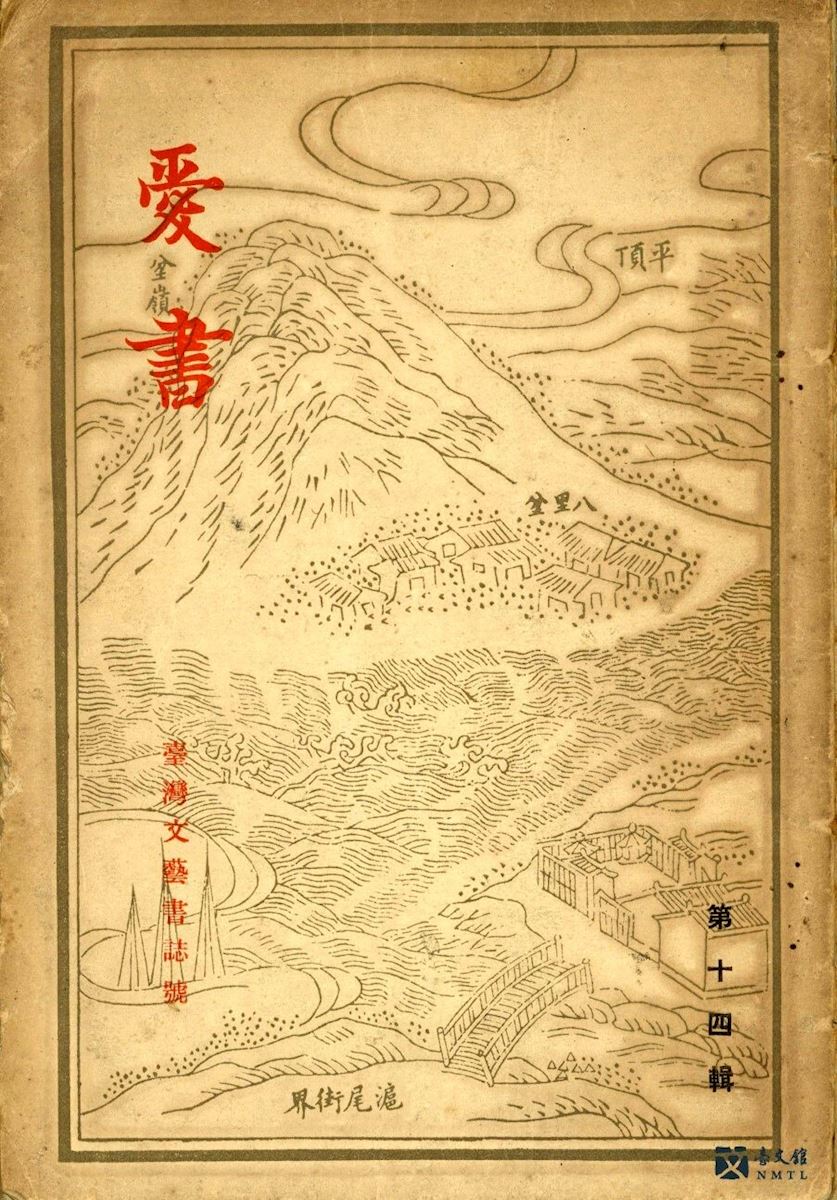 愛書
臺灣文藝書誌號
第十四輯
平頂
坌嶺
八里坌
滬尾街界
臺文館
NMTL